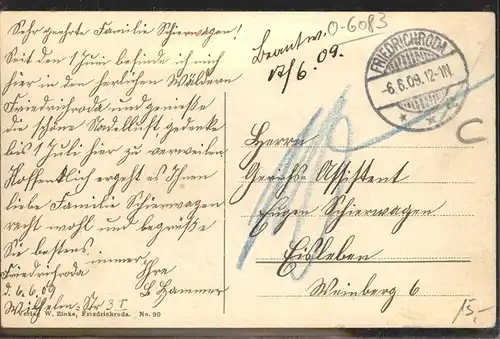 Sehr geehrte Familie Schierwagen!
Seit den 1 Juni befinde ich mich
hier in den herlichen Wäldern
Friedrichroda und genieße
die schöne Nadelluft gedenke
bis 1 Juli hier zu verweilen
Hoffentlich ergeht es Ihnen
liebe Familie Schierwagen
recht wohl und begrüße
Sie bestens
immer
Friedrichroda Ihre
d. 6.6.09 Hammer
Wilhelm-Str 3 I
Verlag W. Zinke, Friedrichroda. No. 90
Beantw.
12/6.09.
0-6083
FRIEDRICHRODA
-6.6.09.12-1N.
Herrn
Gerichts Assistent
Eugen Schierwagen
Eisleben
Weinberg 6
C
15,-